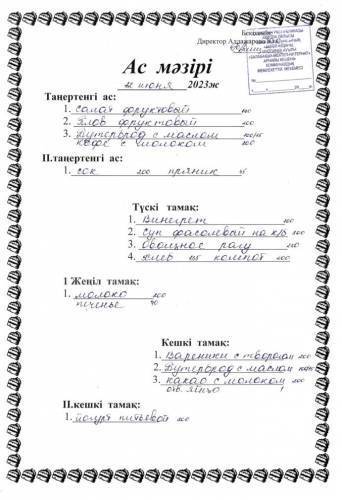 Бекітемін
Директор
Ас мәзірі
июня 2023ж
Таңертеңгі ас:
1. Салат фруктовый
2. Плов фруктовый 200
3. Бутерброд с маслом
кофе с молоком 200
II.таңертеңгі ас:
1. сок 200 пряник
Түскі тамақ:
1. Винегрет 100
2. Суп фасолевый на к/б 200
3. Овощное рагу
4. хлеб компот 200
1 Жеңіл тамақ:
1. молоко 200
печенье
Кешкі тамақ:
1. Вареники с творогом 200
2. Бутерброд с маслом
3. какао с молоком 200
отв. яйцо 1
II.кешкі тамақ:
1. йогурт питьевой 200